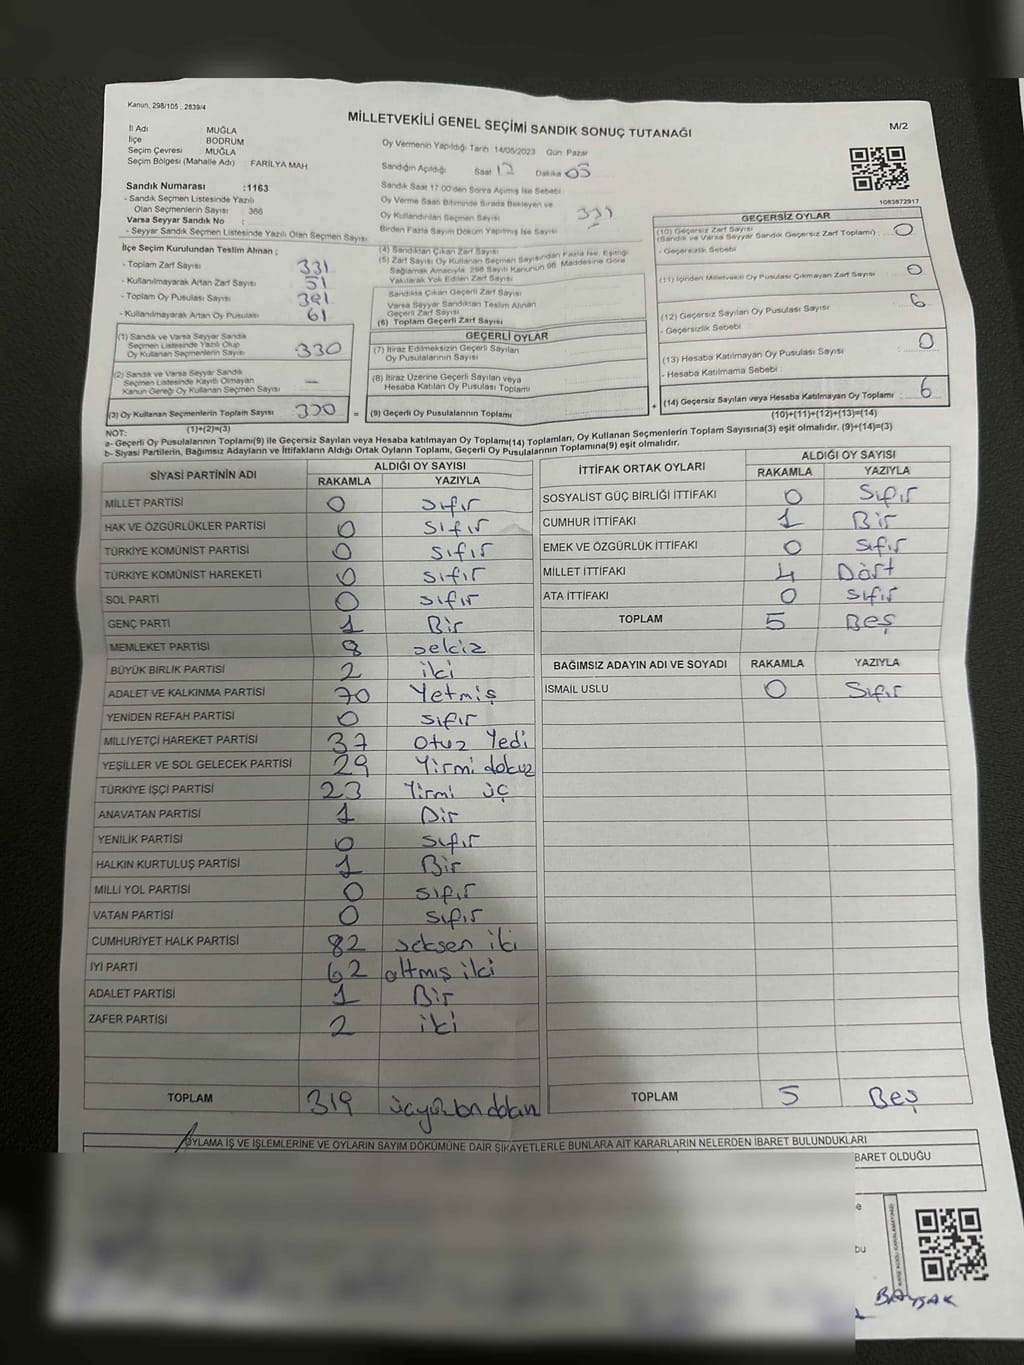 Kanun, 298/105 , 2839/4
MİLLETVEKİLİ GENEL SEÇİMİ SANDIK SONUÇ TUTANAĞI
M/2
İl Adı : MUĞLA
İlçe : BODRUM
Seçim Çevresi : MUĞLA
Seçim Bölgesi (Mahalle Adı) : FARİLYA MAH
Sandık Numarası :1163
- Sandık Seçmen Listesinde Yazılı
Olan Seçmenlerin Sayısı : 366
Varsa Seyyar Sandık No :
- Seyyar Sandık Seçmen Listesinde Yazılı Olan Seçmen Sayısı
Oy Vermenin Yapıldığı Tarih 14/05/2023 Gün: Pazar
Sandığın Açıldığı Saat 17 Dakika 03
Sandık Saat 17.00'den Sonra Açımış İse Sebebi
Oy Verme Saati Bitiminde Sırada Bekleyen ve
Oy Kullandırılan Seçmen Sayısı
Birden Fazla Sayım Döküm Yapılmış İse Sayısı
1083872917
İlçe Seçim Kurulundan Teslim Alınan :
- Toplam Zarf Sayısı 331
- Kullanılmayarak Artan Zarf Sayısı 51
- Toplam Oy Pusulası Sayısı 391
- Kullanılmayarak Artan Oy Pusulası 61
(1) Sandık ve Varsa Seyyar Sandık
Seçmen Listesinde Yazılı Olup
Oy Kullanan Seçmenlerin Sayısı 330
(2) Sandık ve Varsa Seyyar Sandık
Seçmen Listesinde Kayıtlı Olmayan
Kanun Gereği Oy Kullanan Seçmen Sayısı —
(3) Oy Kullanan Seçmenlerin Toplam Sayısı 330 =
(1)+(2)=(3)
(4) Sandıktan Çıkan Zarf Sayısı
(5) Zarf Sayısı Oy Kullanan Seçmen Sayısından Fazla İse, Eşitliği
Sağlamak Amacıyla 298 Sayılı Kanunun 98. Maddesine Göre
Yakılarak Yok Edilen Zarf Sayısı
Sandıkta Çıkan Geçerli Zarf Sayısı
Varsa Seyyar Sandıktan Teslim Alınan
Geçerli Zarf Sayısı
(6) Toplam Geçerli Zarf Sayısı
GEÇERLİ OYLAR
(7) İtiraz Edilmeksizin Geçerli Sayılan
Oy Pusulalarının Sayısı
(8) İtiraz Üzerine Geçerli Sayılan veya
Hesaba Katılan Oy Pusulası Toplamı
(9) Geçerli Oy Pusulalarının Toplamı +
GEÇERSİZ OYLAR
(10) Geçersiz Zarf Sayısı
(Sandık ve Varsa Seyyar Sandık Geçersiz Zarf Toplamı) : 0
- Geçersizlik Sebebi
(11) İçinden Milletvekili Oy Pusulası Çıkmayan Zarf Sayısı 0
(12) Geçersiz Sayılan Oy Pusulası Sayısı 6
- Geçersizlik Sebebi
(13) Hesaba Katılmayan Oy Pusulası Sayısı 0
- Hesaba Katılmama Sebebi
(14) Geçersiz Sayılan veya Hesaba Katılmayan Oy Toplamı : 6
(10)+(11)+(12)+(13)=(14)
NOT:
a- Geçerli Oy Pusulalarının Toplamı(9) ile Geçersiz Sayılan veya Hesaba katılmayan Oy Toplamı(14) Toplamları, Oy Kullanan Seçmenlerin Toplam Sayısına(3) eşit olmalıdır. (9)+(14)=(3)
b- Siyasi Partilerin, Bağımsız Adayların ve İttifakların Aldığı Ortak Oyların Toplamı, Geçerli Oy Pusulalarının Toplamına(9) eşit olmalıdır.
SİYASİ PARTİNİN ADI ALDIĞI OY SAYISI
RAKAMLA YAZIYLA
MİLLET PARTİSİ 0 sıfır
HAK VE ÖZGÜRLÜKLER PARTİSİ 0 sıfır
TÜRKİYE KOMÜNİST PARTİSİ 0 sıfır
TÜRKİYE KOMÜNİST HAREKETİ 0 sıfır
SOL PARTİ 0 sıfır
GENÇ PARTİ 1 Bir
MEMLEKET PARTİSİ 8 sekiz
BÜYÜK BİRLİK PARTİSİ 2 iki
ADALET VE KALKINMA PARTİSİ 70 Yetmiş
YENİDEN REFAH PARTİSİ 0 sıfır
MİLLİYETÇİ HAREKET PARTİSİ 37 otuz Yedi
YEŞİLLER VE SOL GELECEK PARTİSİ 29 Yirmi dokuz
TÜRKİYE İŞÇİ PARTİSİ 23 Yirmi üç
ANAVATAN PARTİSİ 1 Bir
YENİLİK PARTİSİ 0 sıfır
HALKIN KURTULUŞ PARTİSİ 1 Bir
MİLLİ YOL PARTİSİ 0 sıfır
VATAN PARTİSİ 0 sıfır
CUMHURİYET HALK PARTİSİ 82 seksen iki
İYİ PARTİ 62 altmış iki
ADALET PARTİSİ 1 Bir
ZAFER PARTİSİ 2 iki
TOPLAM 319
İTTİFAK ORTAK OYLARI ALDIĞI OY SAYISI
RAKAMLA YAZIYLA
SOSYALİST GÜÇ BİRLİĞİ İTTİFAKI 0 Sıfır
CUMHUR İTTİFAKI 1 Bir
EMEK VE ÖZGÜRLÜK İTTİFAKI 0 sıfır
MİLLET İTTİFAKI 4 Dört
ATA İTTİFAKI 0 sıfır
TOPLAM 5 Beş
BAĞIMSIZ ADAYIN ADI VE SOYADI RAKAMLA YAZIYLA
İSMAİL USLU 0 Sıfır
TOPLAM 5 Beş
OYLAMA İŞ VE İŞLEMLERİNE VE OYLARIN SAYIM DÖKÜMÜNE DAİR ŞİKAYETLERLE BUNLARA AİT KARARLARIN NELERDEN İBARET BULUNDUKLARI
BARET OLDUĞU